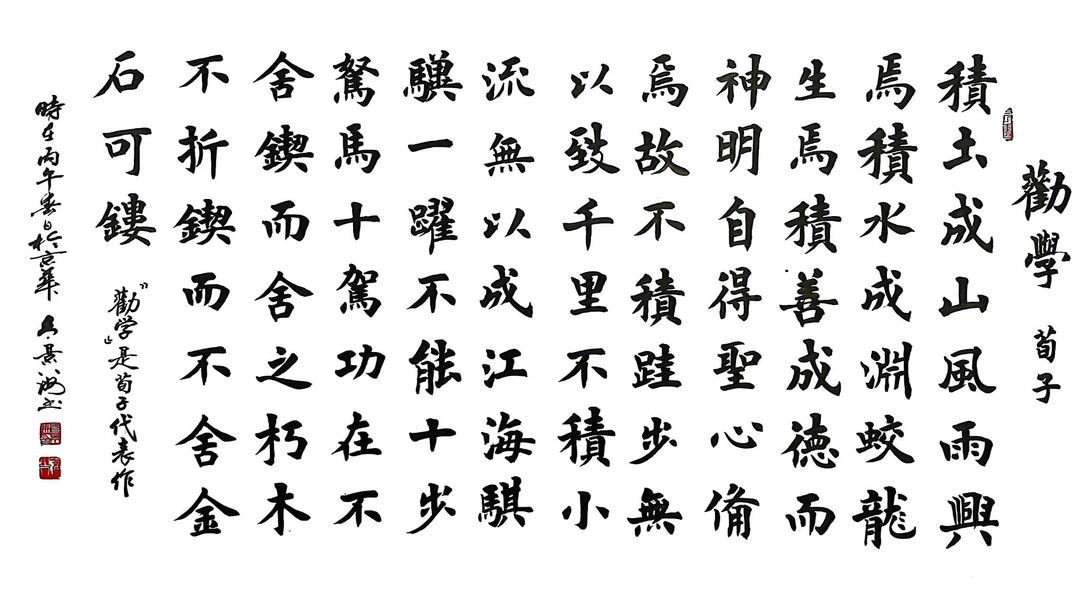 勸學 荀子
積土成山風雨興
焉積水成淵蛟龍
生焉積善成德而
神明自得聖心備
焉故不積跬步無
以致千里不積小
流無以成江海騏
驥一躍不能十步
駑馬十駕功在不
舍鍥而舍之朽木
不折鍥而不舍金
石可鏤
“勸学”是荀子代表作
時在丙午春日於京華 景海书